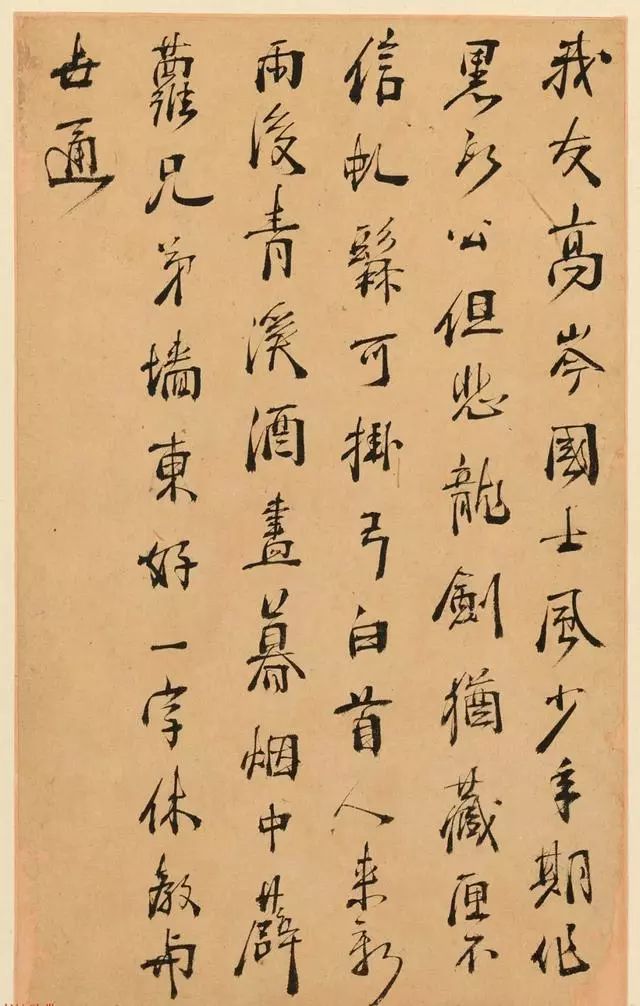 我友高岑國士風少年期作
黑頭公但悲龍劍猶藏匣不
信虬髯可掛弓白首人来新
雨後青溪酒盡暮烟中薜
蘿兄弟墻東好一字休教与
世通